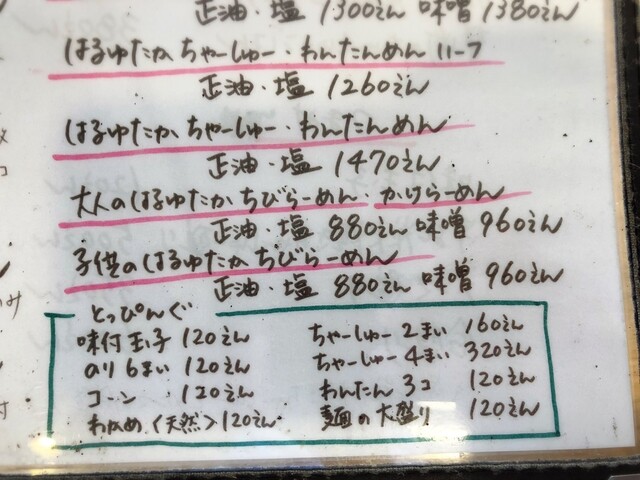 正油・塩 1300えん 味噌 1380えん
はるゆたか ちゃーしゅー・わんたんめん ハーフ
正油・塩 1260えん
はるゆたか ちゃーしゅー・わんたんめん
正油・塩 1470えん
大人のはるゆたか ちびらーめん・かけらーめん
正油・塩 880えん 味噌 960えん
子供のはるゆたか ちびらーめん
正油・塩 880えん 味噌 960えん
とっぴんぐ
味付玉子 120えん
のり6まい 120えん
コーン 120えん
わかめ〈天然〉120えん
ちゃーしゅー 2まい 160えん
ちゃーしゅー 4まい 320えん
わんたん 3コ 120えん
麺の大盛り 120えん